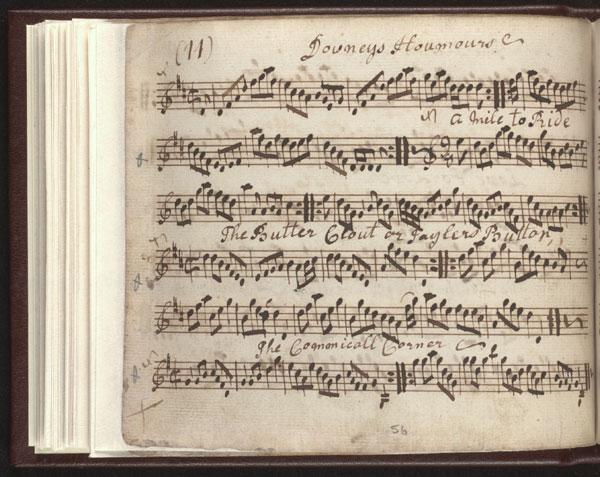 (11) Downeys Houmours
a mile to Ride
The Butter Clout or Taylers Button,
The Cononicall Corner
56